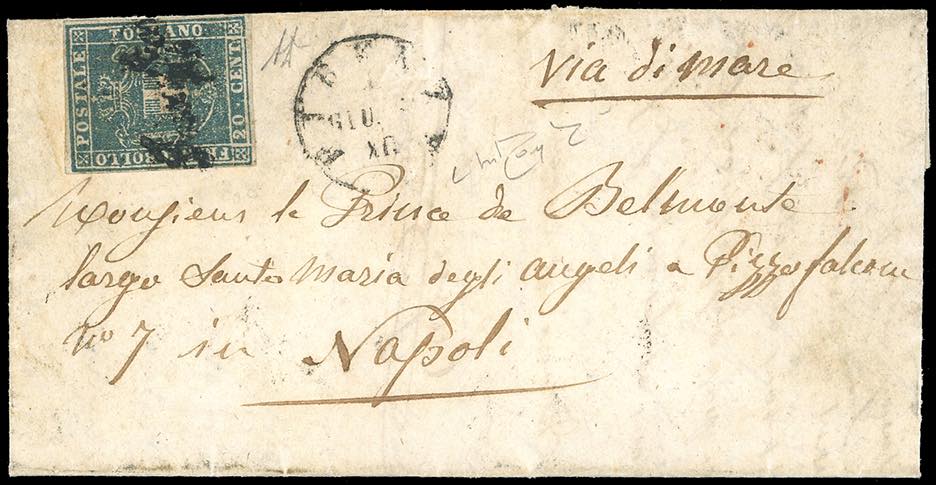 FRANCOBOLLO POSTALE TOSCANO 20 CENT
GIU.
via di mare
Monsieur le Prince de Belmonte
largo Santa Maria degli angeli a Pizzofalcone
No 7 in
Napoli